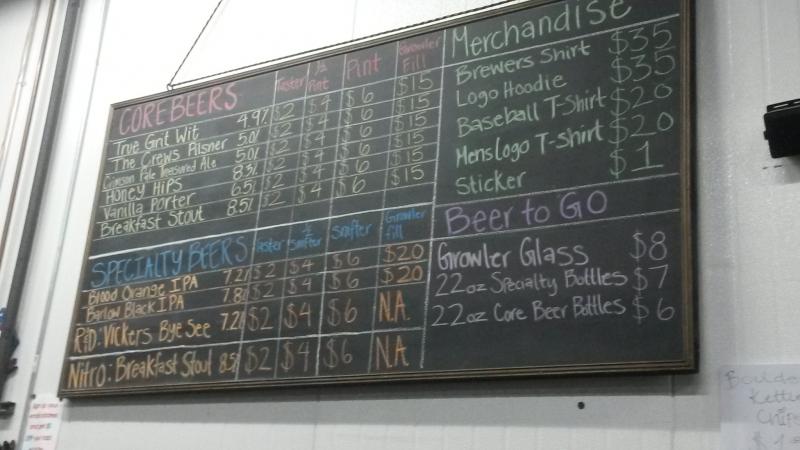 CORE BEERS Taster ½ Pint Pint Growler Fill
True Grit Wit 4.9% $2 $4 $6 $15
The Crews Pilsner 5.0% $2 $4 $6 $15
Crimson Pale Treasured Ale 5.0% $2 $4 $6 $15
Honey Hips 8.3% $2 $4 $6 $15
Vanilla Porter 6.5% $2 $4 $6 $15
Breakfast Stout 8.5% $2 $4 $6 $15
SPECIALTY BEERS Taster ½ Snifter Snifter Growler fill
Blood Orange IPA 7.2% $2 $4 $6 $20
Barlow Black IPA 7.8% $2 $4 $6 $20
R&D: Vickers Bye See 7.2% $2 $4 $6 N.A.
Nitro: Breakfast Stout 8.5% $2 $4 $6 N.A
Merchandise
Brewers Shirt $35
Logo Hoodie $35
Baseball T-Shirt $20
Mens logo T-shirt $20
Sticker $1
Beer to GO
Growler Glass $8
22oz Specialty Bottles $7
22oz Core Beer Bottles $6
Kettle
Chips